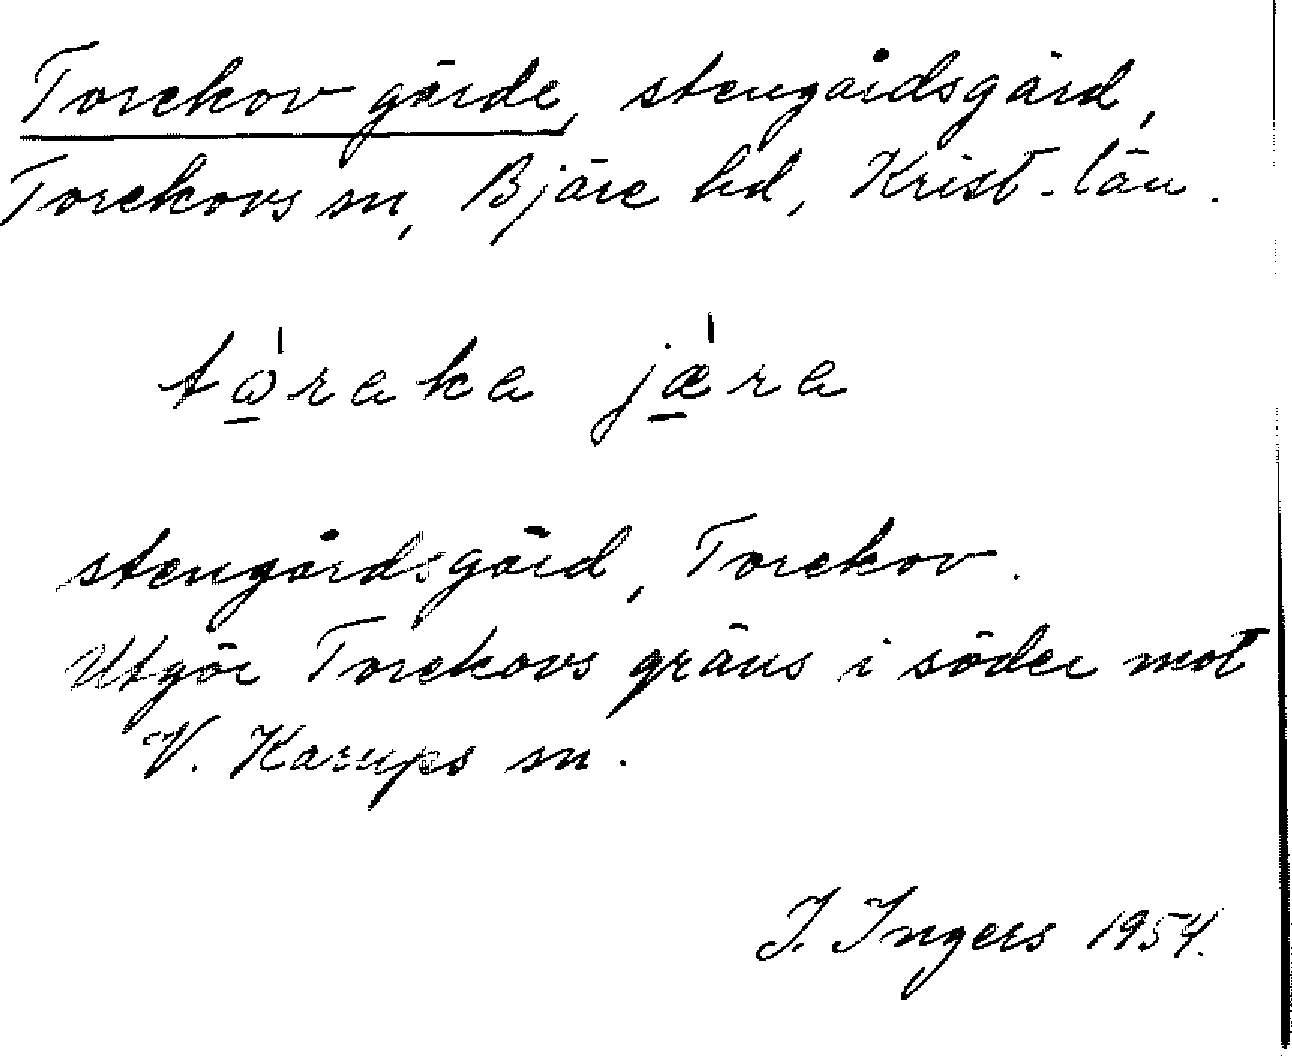 Torekov gärde, stengärdsgård,
Torekovs sn, Bjäre hd, Krist. län.
tǻ̱raka jǽ̱ra
stengärdsgård, Torekov.
Utgör Torekovs gräns i söder mot
V. Karups sn.
I. Ingers 1954.